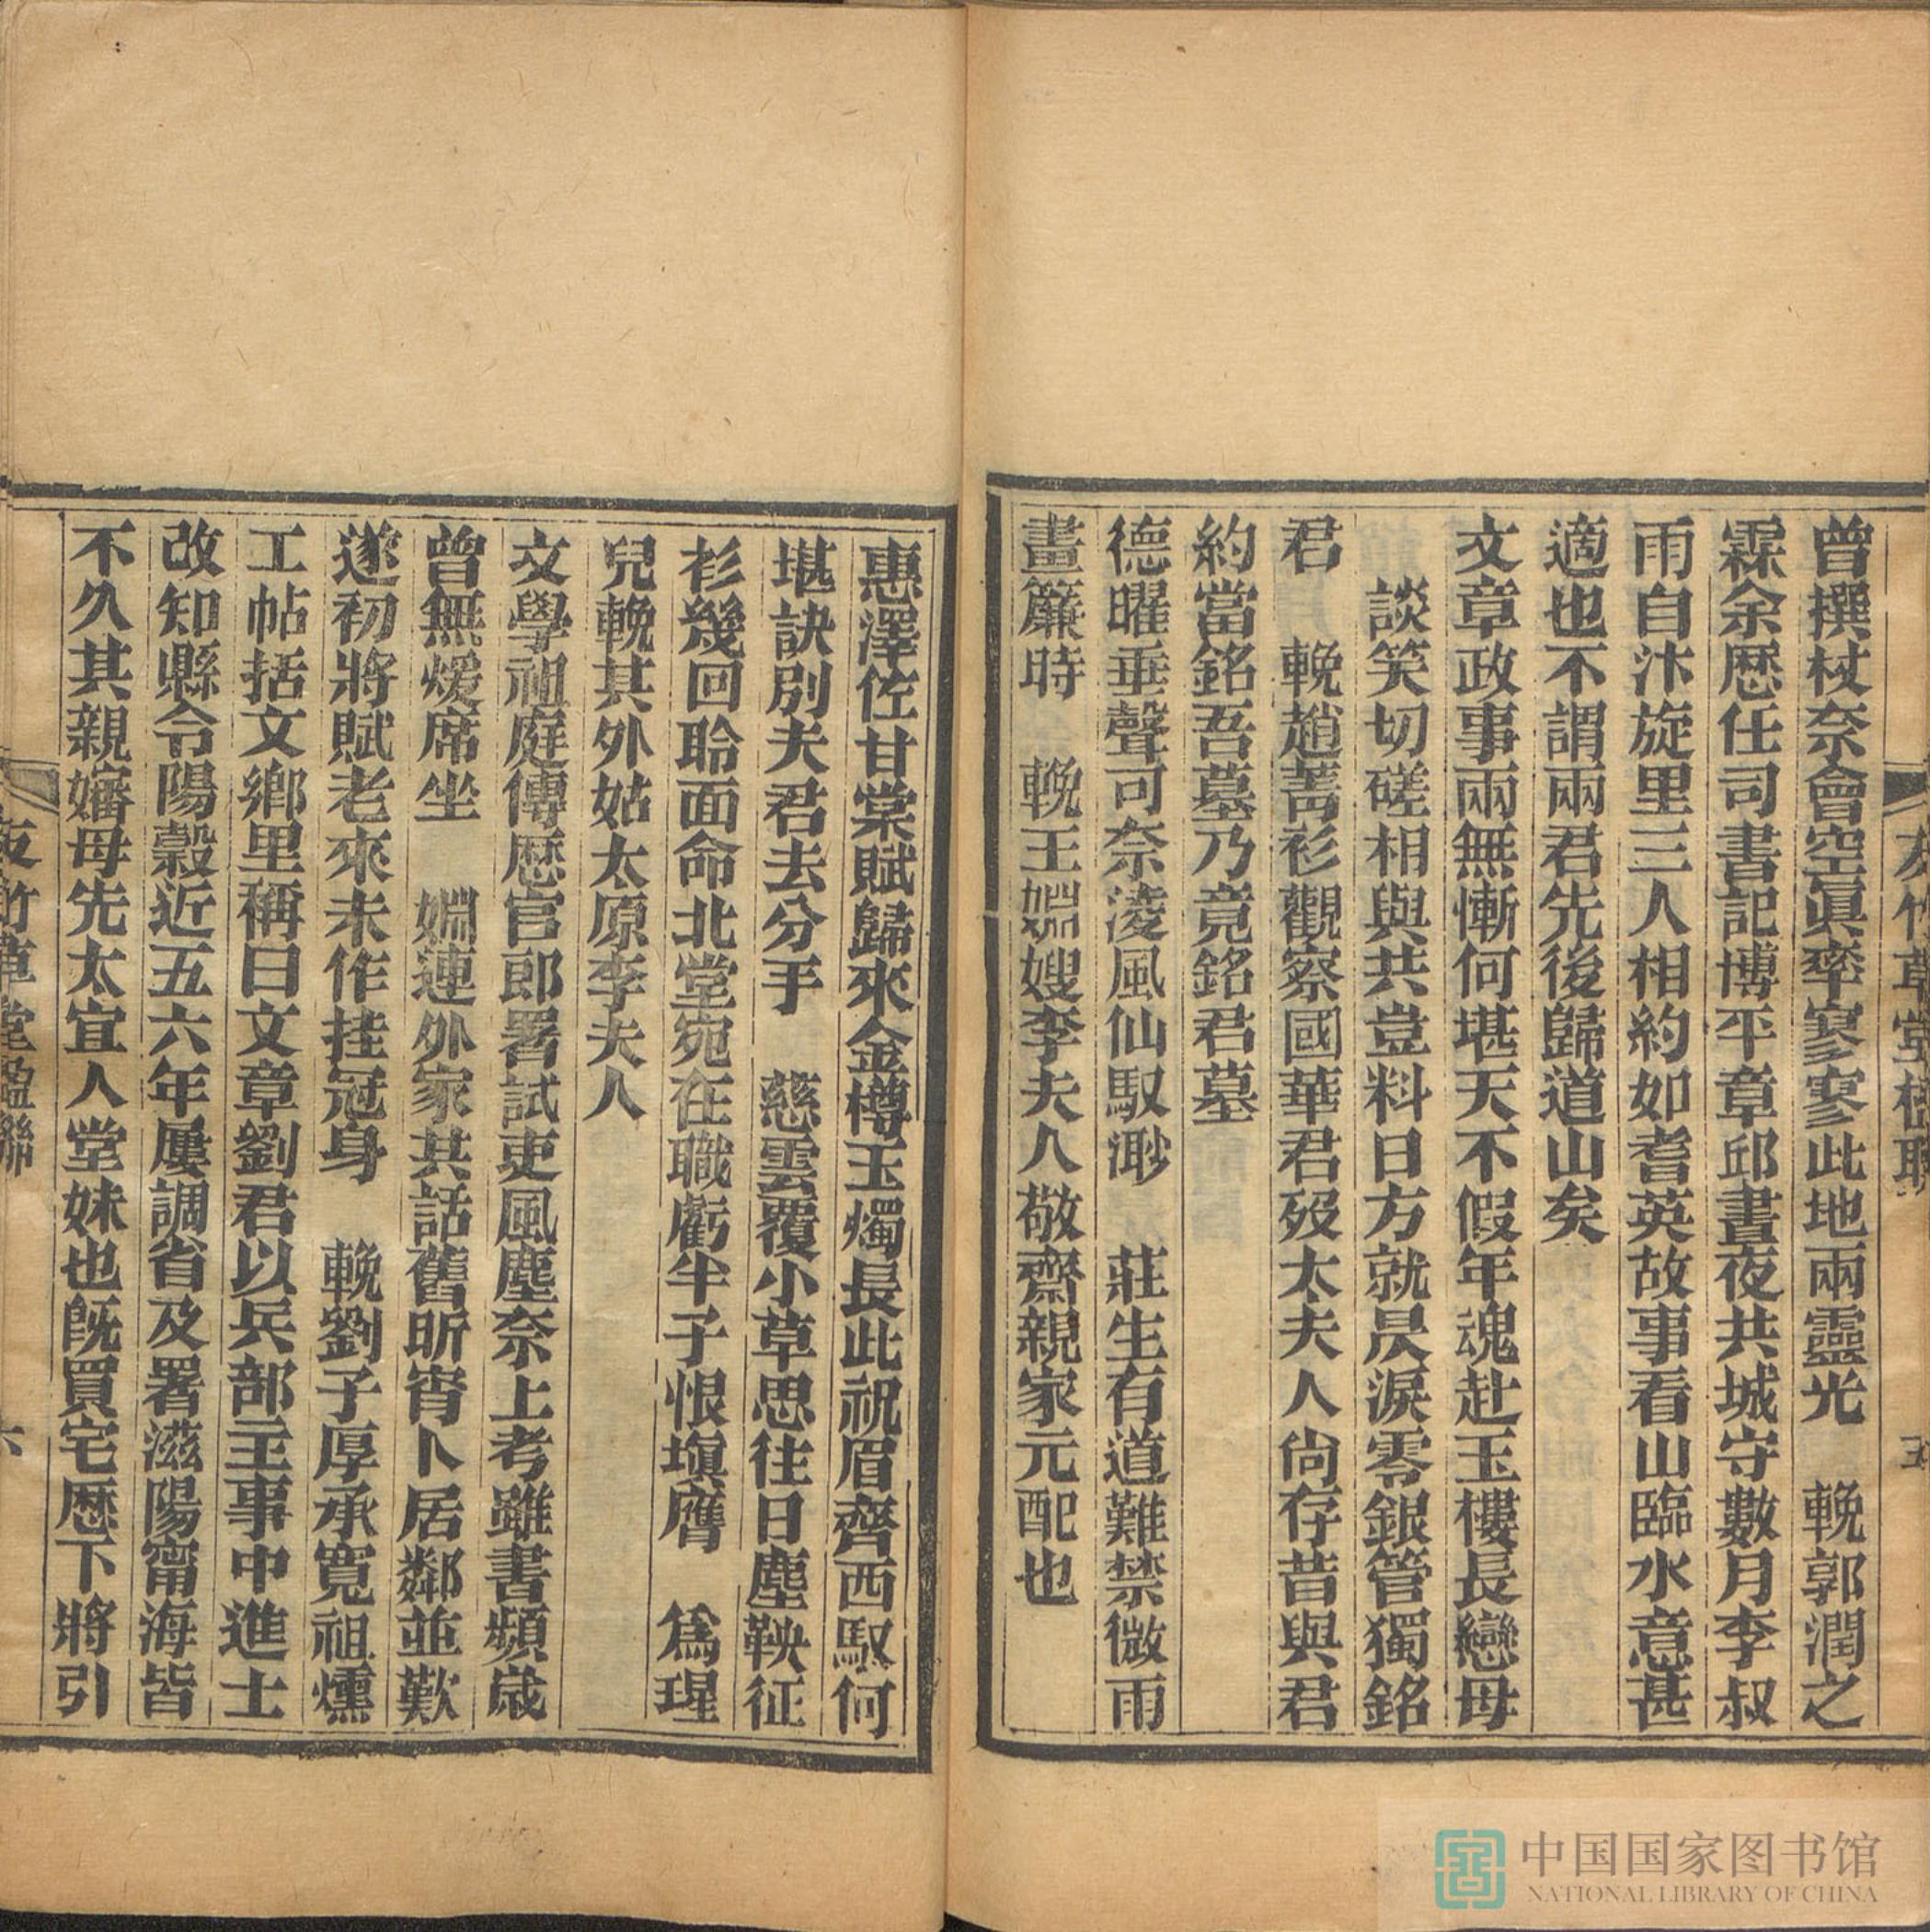 曾撰杖奈會空眞率寥寥此地兩靈光　輓郭潤之
霖余歷任司書記博平章邱晝夜共城守數月李叔
雨自汴旋里三人相約如耆英故事看山臨水意甚
適也不謂兩君先後歸道山矣
文章政事兩無慚何堪天不假年魂赴玉樓長戀母
談笑切磋相與共豈料日方就昃淚零銀管獨銘
君　輓趙菁衫觀察國華君歿太夫人尚存昔與君
約當銘吾墓乃竟銘君墓
德曜垂聲可奈淩風仙馭渺　莊生有道難禁微雨
畫簾時　輓王姻嫂李夫人敬齋親家元配也
友竹草堂楹聯　五
惠澤佐甘棠賦歸來金樽玉燭長此祝眉齊西馭何
堪訣別夫君去分手　慈雲覆小草思往日塵鞅征
衫幾回聆面命北堂宛在職虧半子恨塡膺　爲瑆
兒輓其外姑太原李夫人
文學祖庭傳歷官郎署試吏風塵奈上考雖書頻歲
曾無煖席坐　姻連外家共話舊昕宵卜居鄰並歎
遂初將賦老來未作挂冠身　輓劉子厚承寬祖燻
工帖括文鄉里稱曰文章劉君以兵部主事中進士
改知縣令陽穀近五六年屢調省及署滋陽甯海皆
不久其親嬸母先太宜人堂妹也旣買宅歷下將引
友竹草堂楹聯　六
中国国家图书馆
NATIONAL LIBRARY OF CHINA